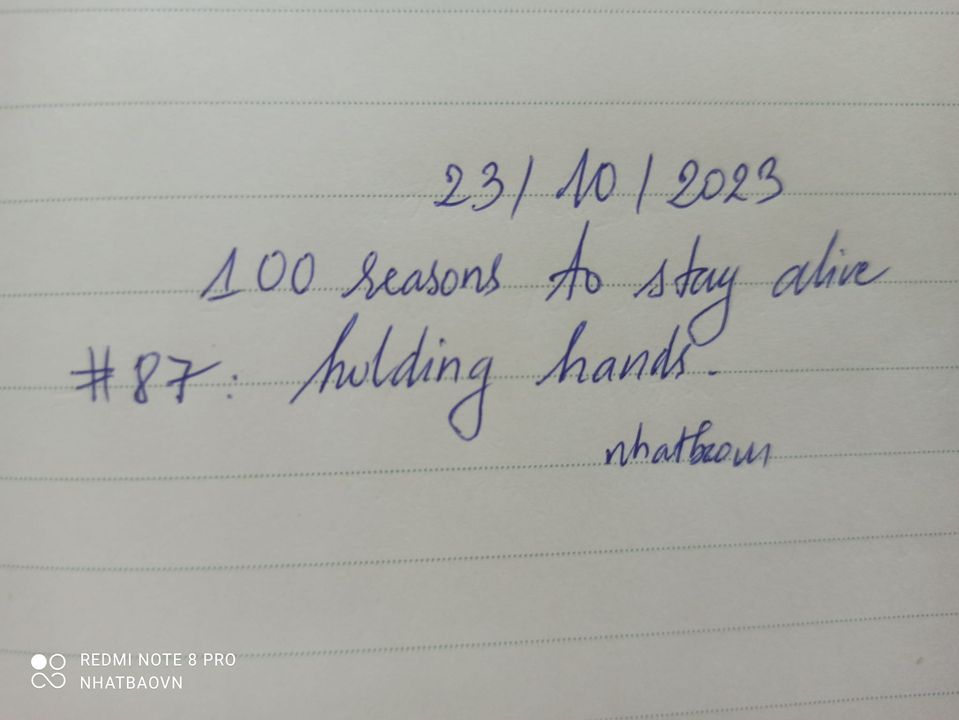 23/10/2023
100 reasons to stay alive
#87: holding hands.
nhatbaovn
REDMI NOTE 8 PRO
NHATBAOVN